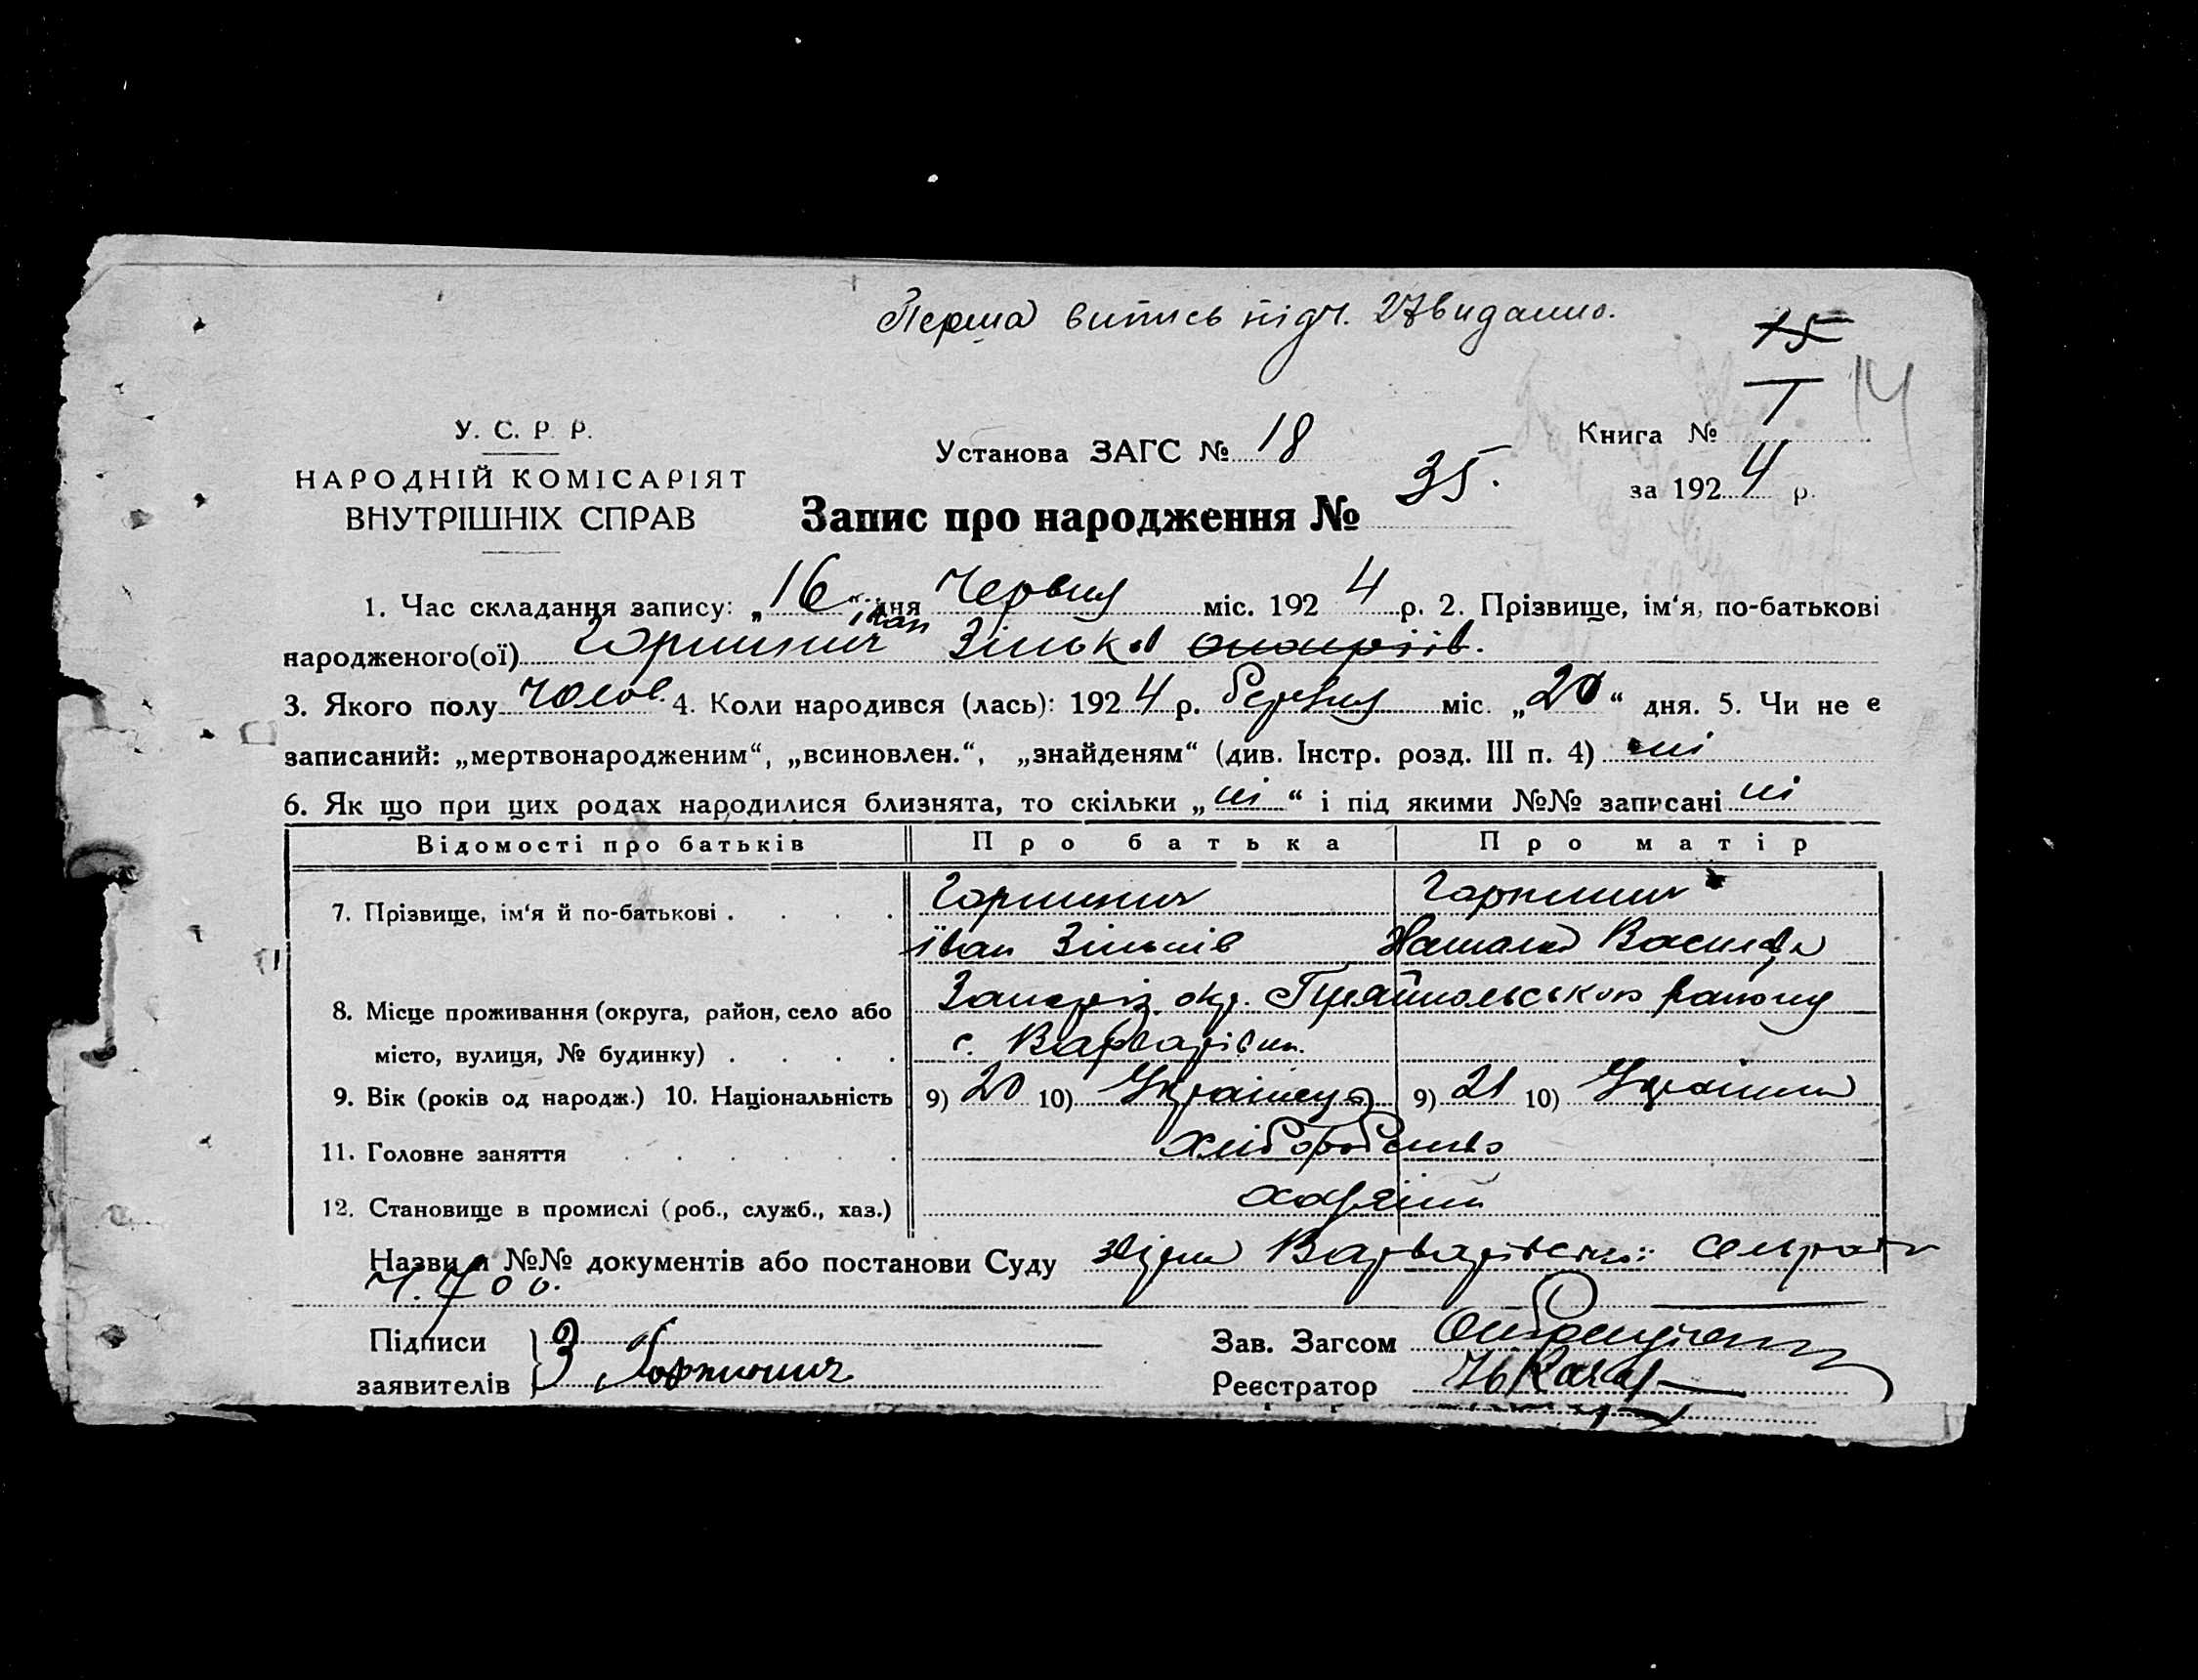 Перша випись підч. 27 видано.
15
14
У. С. Р. Р.
Установа ЗАГС № 18
Книга № 1
НАРОДНІЙ КОМІСАРІЯТ
ВНУТРІШНІХ СПРАВ
за 1924 р.
Запис про народження № 35.
1. Час складання запису: „16“ дня Червня міс. 1924 р. 2. Прізвище, ім‘я, по-батькові
іван
народженого(ої) Горпинич Зінько
3. Якого полу чолов. 4. Коли народився (лась): 1924 р. березня міс. „20“ дня. 5. Чи не є
записаний: „мертвонародженим“, „всиновлен.“, „знайденям“ (див. Інстр. розд. III п. 4) ні
6. Як що при цих родах народилися близнята, то скільки „ні“ і під якими №№ записані ні
Відомості про батьків Про батька Про матір
7. Прізвище, ім‘я й по-батькові . . . . Горпинич Горпинич
іван Зіньків Наталія Василівна
8. Місце проживання (округа, район, село або Запоріз. окр. Гуляйпольського району
місто, вулиця, № будинку) . . . . с. Варварівка.
9. Вік (років од народж.) 10. Національність 9) 20 10) Українець 9) 21 10) Українка
11. Головне заняття . . . . . . хліборобство
12. Становище в промислі (роб., служб., хаз.) хазяїн
Назви й №№ документів або постанови Суду Варварівської сельради
ч. 700.
Підписи
заявителів } З Горпинич
Зав. Загсом
Реєстратор